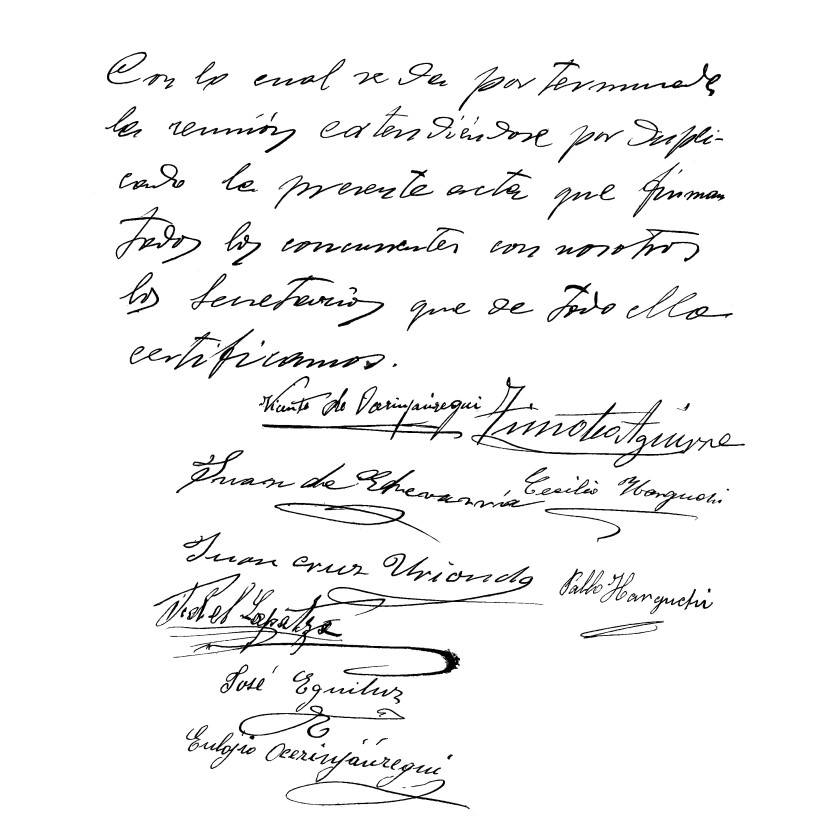 Con lo cual se da por terminada
la reunión extendiéndose por dupli-
cado la presente acta que firman
todos los concurrentes con nosotros
los Secretarios que de todo ello
certificamos.
Vicente de Ocerinjáuregui Timoteo Aguirre
Juan de Echevarria Cecilio Horguchi
Juan Cruz Urionda Pablo Harguchi
Fidel Lapatza
José Eguiluz
Eulojio Ocerinjáuregui